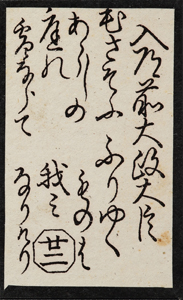 入道前大政大臣
花さそふ
あらしの
庭の
雪ならて
ふりゆく
ものは
我ミ
なりけり
廿二